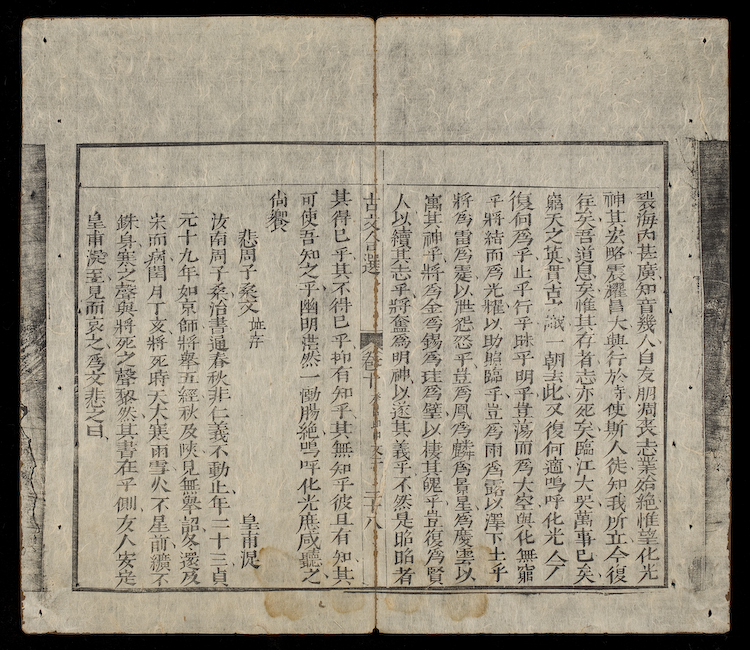 裂海內甚廣知音幾人自友朋凋喪志業殆絕惟望化光
神其宏略震耀昌大興行於時使斯人徒知我所立今復
往矣吾道息矣惟其存者志亦死矣臨江大哭萬事已矣
窮天之英貫古識一朝去此又復何適嗚呼化光今
復何爲乎止乎行乎昧乎明乎豈蕩而爲太空與化無窮
乎將結而爲光耀以助照臨乎豈爲雨爲露以澤下土乎
將爲雷爲霆以泄怨怒乎豈爲鳳爲麟爲景星爲慶雲以
寓其神乎將爲金爲錫爲珪爲璧以棲其魄乎豈復爲賢
人以續其志乎將奮爲明神以遂其義乎不然是昭昭者
古文合選 卷十 三十八
其得已乎其不得已乎抑有知乎其無知乎彼且有知其
可使吾知之乎幽明茫然一慟腸絕嗚呼化光庶咸聽之
尚饗
悲周子桑文 並序 皇甫湜
汝南周子桑治書通春秋非仁義不動止年二十三貞
元十九年如京師將舉五經秋及陜見無舉詔冬還及
宋而病閏月丁亥將死時天大寒雨雪火不星前纊不
銖身寒之聲與將死之聲黎然其書在乎側友人安定
皇甫湜至見而哀之爲文悲之曰